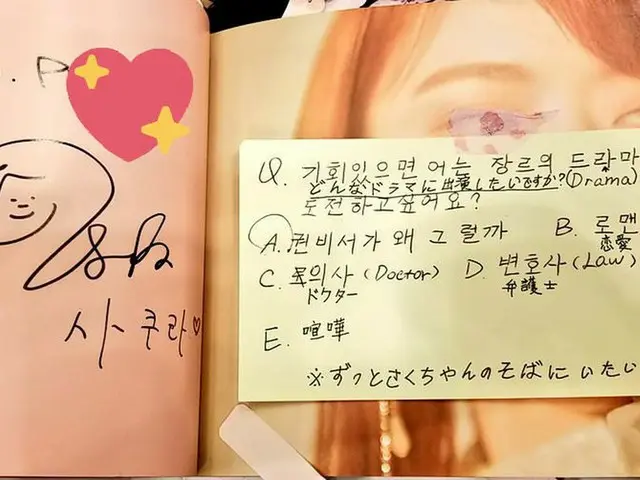 . P
사쿠라♡
Q. 기회있으면 어느 장르의 드라마
どんなドラマに出演したいですか?(Drama)
도전하고싶어요?
A. 권비서가 왜 그럴까 B. 로맨
恋愛
C. 의사 (Doctor) D. 변호사(Law)
ドクター 弁護士
E. 喧嘩
※ずっとさくちゃんのそばにいたい